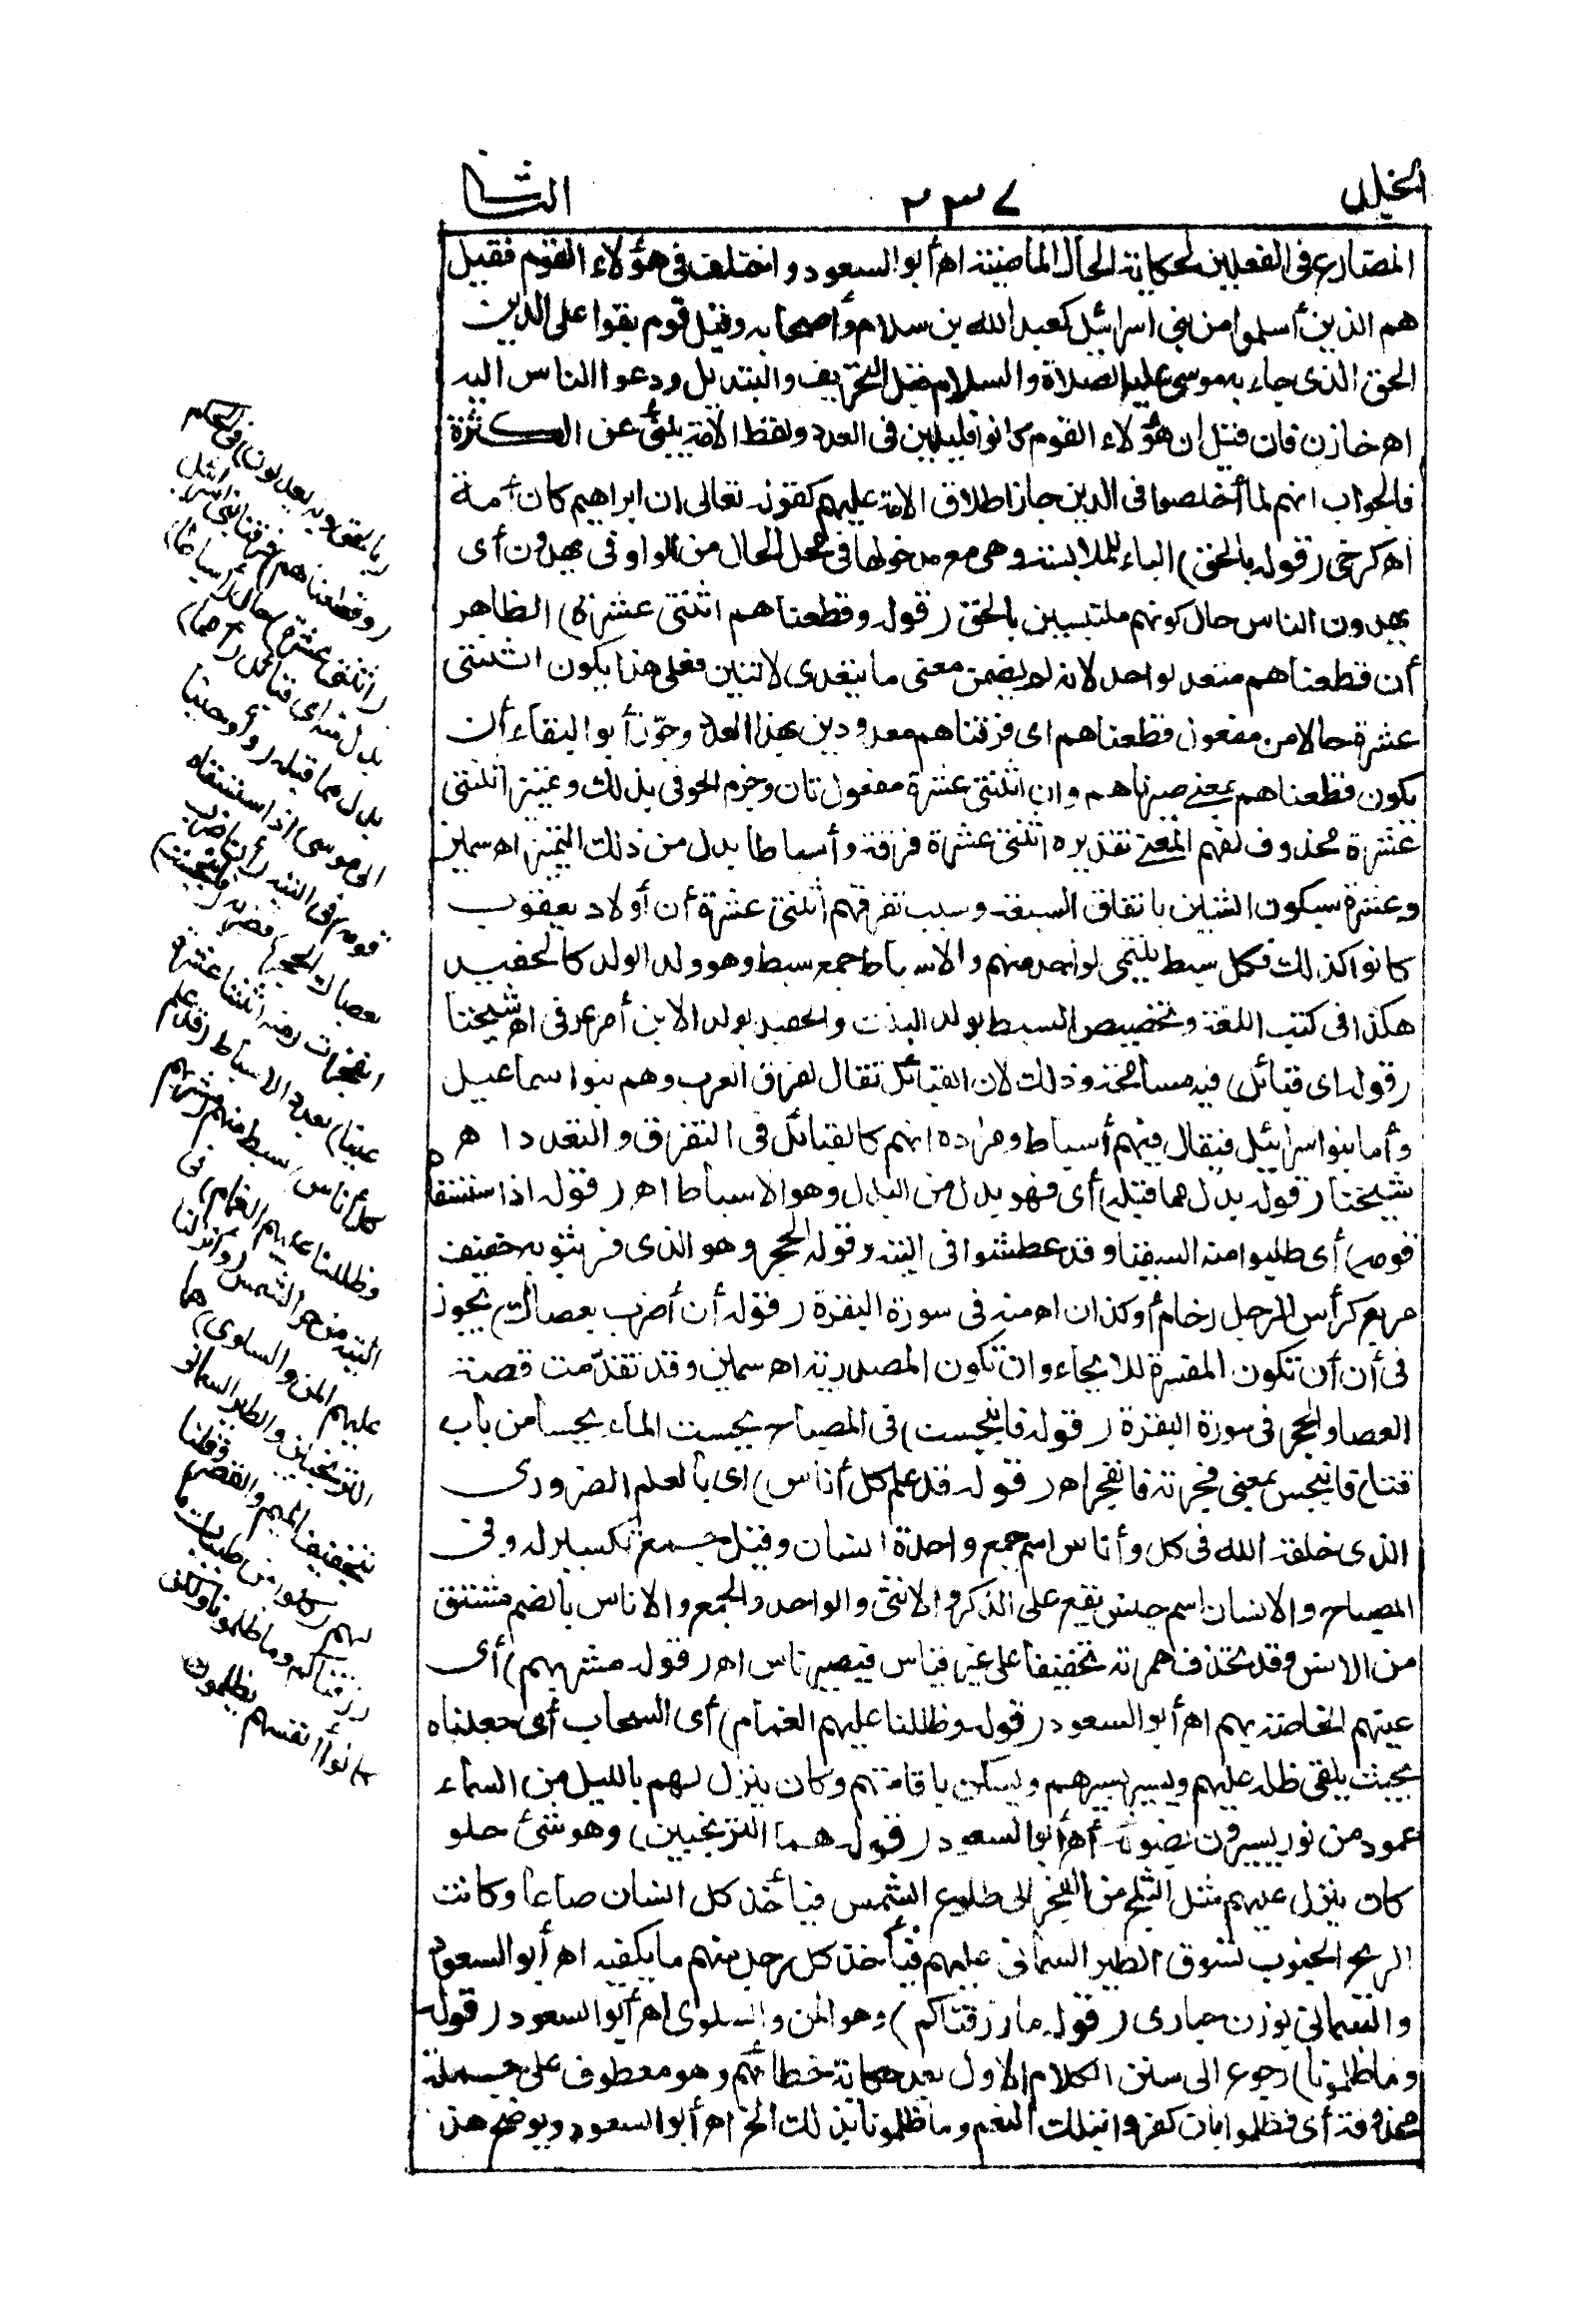 الجمل
٢٣٧
الثانى
المضارع فى الفعلين لحكاية الحال الماضية اه أبو السعود واختلف فى هؤلاء القوم فقيل
هم الذين أسلموا من بنى اسرائيل كعبد الله بن سلام وأصحابه وقيل قوم بقوا على الدين
الحق الذى جاء به موسى عليه الصلاة والسلام قبل التحريف والتبديل ودعوا الناس اليه
اه خازن فان قيل ان هؤلاء القوم كانوا قليلين فى العدد ولفظ الامة ينبئ عن الكثرة
فالجواب انهم لما أخلصوا فى الدين جاز اطلاق الامة عليهم كقوله تعالى ان ابراهيم كان أمة
اه كرخى (قوله بالحق) الباء للملابسة وهى مع مدخولها فى محل الحال من الواو فى يهدون أى
يهدون الناس حال كونهم ملتبسين بالحق (قوله وقطعناهم اثنتى عشرة) الظاهر
أن قطعناهم متعد لواحد لانه لم يضمن معنى ما يتعدى لاثنين فعلى هذا يكون اثنتى
عشرة حالا من مفعول قطعناهم اى فرقناهم معدودين بهذا العدد وجوّز أبو البقاء أن
يكون قطعناهم بمعنى صيرناهم وان اثنتى عشرة مفعول ثان وجزم الحوفى بذلك وتمييز اثنتى
عشرة محذوف لفهم المعنى تقديره اثنتى عشرة فرقة وأسباطا بدل من ذلك التمييز اه سمين
وعشرة بسكون الشين باتفاق السبعة وسبب تفرقهم اثنتى عشرة أن أولاد يعقوب
كانوا كذلك فكل سبط ينتمى لواحد منهم والاسباط جمع سبط وهو ولد الولد كالحفيد
هكذا فى كتب اللغة وتخصيص السبط بولد البنت والحفيد بولد الابن أمر عرفى اه شيخنا
(قوله اى قبائل) فيه مسامحة وذلك لان القبائل تقال لفرق العرب وهم بنوا سماعيل
وأما بنوا سرائيل فيقال فيهم أسباط ومراده انهم كالقبائل فى التفرق والتعدد اه
شيخنا (قوله بدل مما قبله) أى فهو بدل من البدل وهو الاسباط اه (قوله اذا ستسقاه
قومه) أى طلبوا منه السقيا وقد عطشوا فى التيه وقوله الحجر وهو الذى فر بثوبه خفيف
مربع كرأس الرجل رخام أو كذان اه منه فى سورة البقرة (قوله أن أضرب بعصاك) يجوز
فى أن أن تكون المفسرة للايحاء وان تكون المصدرية اه سمين وقد تقدّمت قصة
العصا والحجر فى سورة البقرة (قوله فانبجست) فى المصباح بجست الماء بجسا من باب
قتل فانبجس بمعنى فجرته فانفجر اه (قوله قد علم كل أناس) اى بالعلم الضرورى
الذى خلقه الله فى كل وأناس اسم جمع واحدة انسان وقيل جمع تكسير له وفى
المصباح والانسان اسم جنس يقع على الذكر والانثى والواحد والجمع والاناس بالضم مشتق
من الانس وقد تحذف همزته تخفيفا على غير قياس فيصير ناس اه (قوله مشربهم) أى
عينهم الخاصة بهم اه أبو السعود (قوله وظللنا عليهم الغمام) أى السحاب أى جعلناه
بحيث يلقى ظله عليهم ويسير بسيرهم ويسكن باقامتهم وكان ينزل لهم بالليل من السماء
عمود من نور يسيرون بضوئه اه أبو السعود (قوله هما الترنجبين) وهو شئ حلو
كان ينزل عليهم مثل الثلج من الفجر الى طلوع الشمس فيأخذ كل انسان صاعا وكانت
الريح الجنوب تسوق الطير السمانى عليهم فيأخذ كل رجل منهم ما يكفيه اه أبو السعود
والسمانى بوزن حبارى (قوله ما رزقناكم) وهو المن والسلوى اه أبو السعود (قوله
وما ظلمونا) رجوع الى سنن الكلام الاول بعد حكاية خطابهم وهو معطوف على جملة
محذوفة أى فظلموا بان كفروا بتلك النعم وما ظلمونا بذلك الخ اه أبو السعود ويوضح هذ
(بالحق وبه يعدلون) فى الحكم
(وقطعناهم) فرقنا بنى اسرائيل
(اثنتى عشرة) حال (أسباطا)
بدل منه اى قبائل (أمما)
بدل مما قبله (وأوحينا
الى موسى اذ استسقاه
قومه) فى التيه (أن اضرب
بعصاك الحجر) فضربه (فانبجست)
انفجرت (منه اثنتا عشرة
عينا) بعدد الاسباط (قد علم
كل أناس) سبط منهم (مشربهم
وظللنا عليهم الغمام) فى
التيه من حر الشمس (وأنزلنا
عليهم المن والسلوى) هما
الترنجبين والطير السمانى
بتخفيف الميم والقصر وقلنا
لهم (كلوا من طيبات ما
رزقناكم وما ظلمونا ولكن
كانوا أنفسهم يظلمون